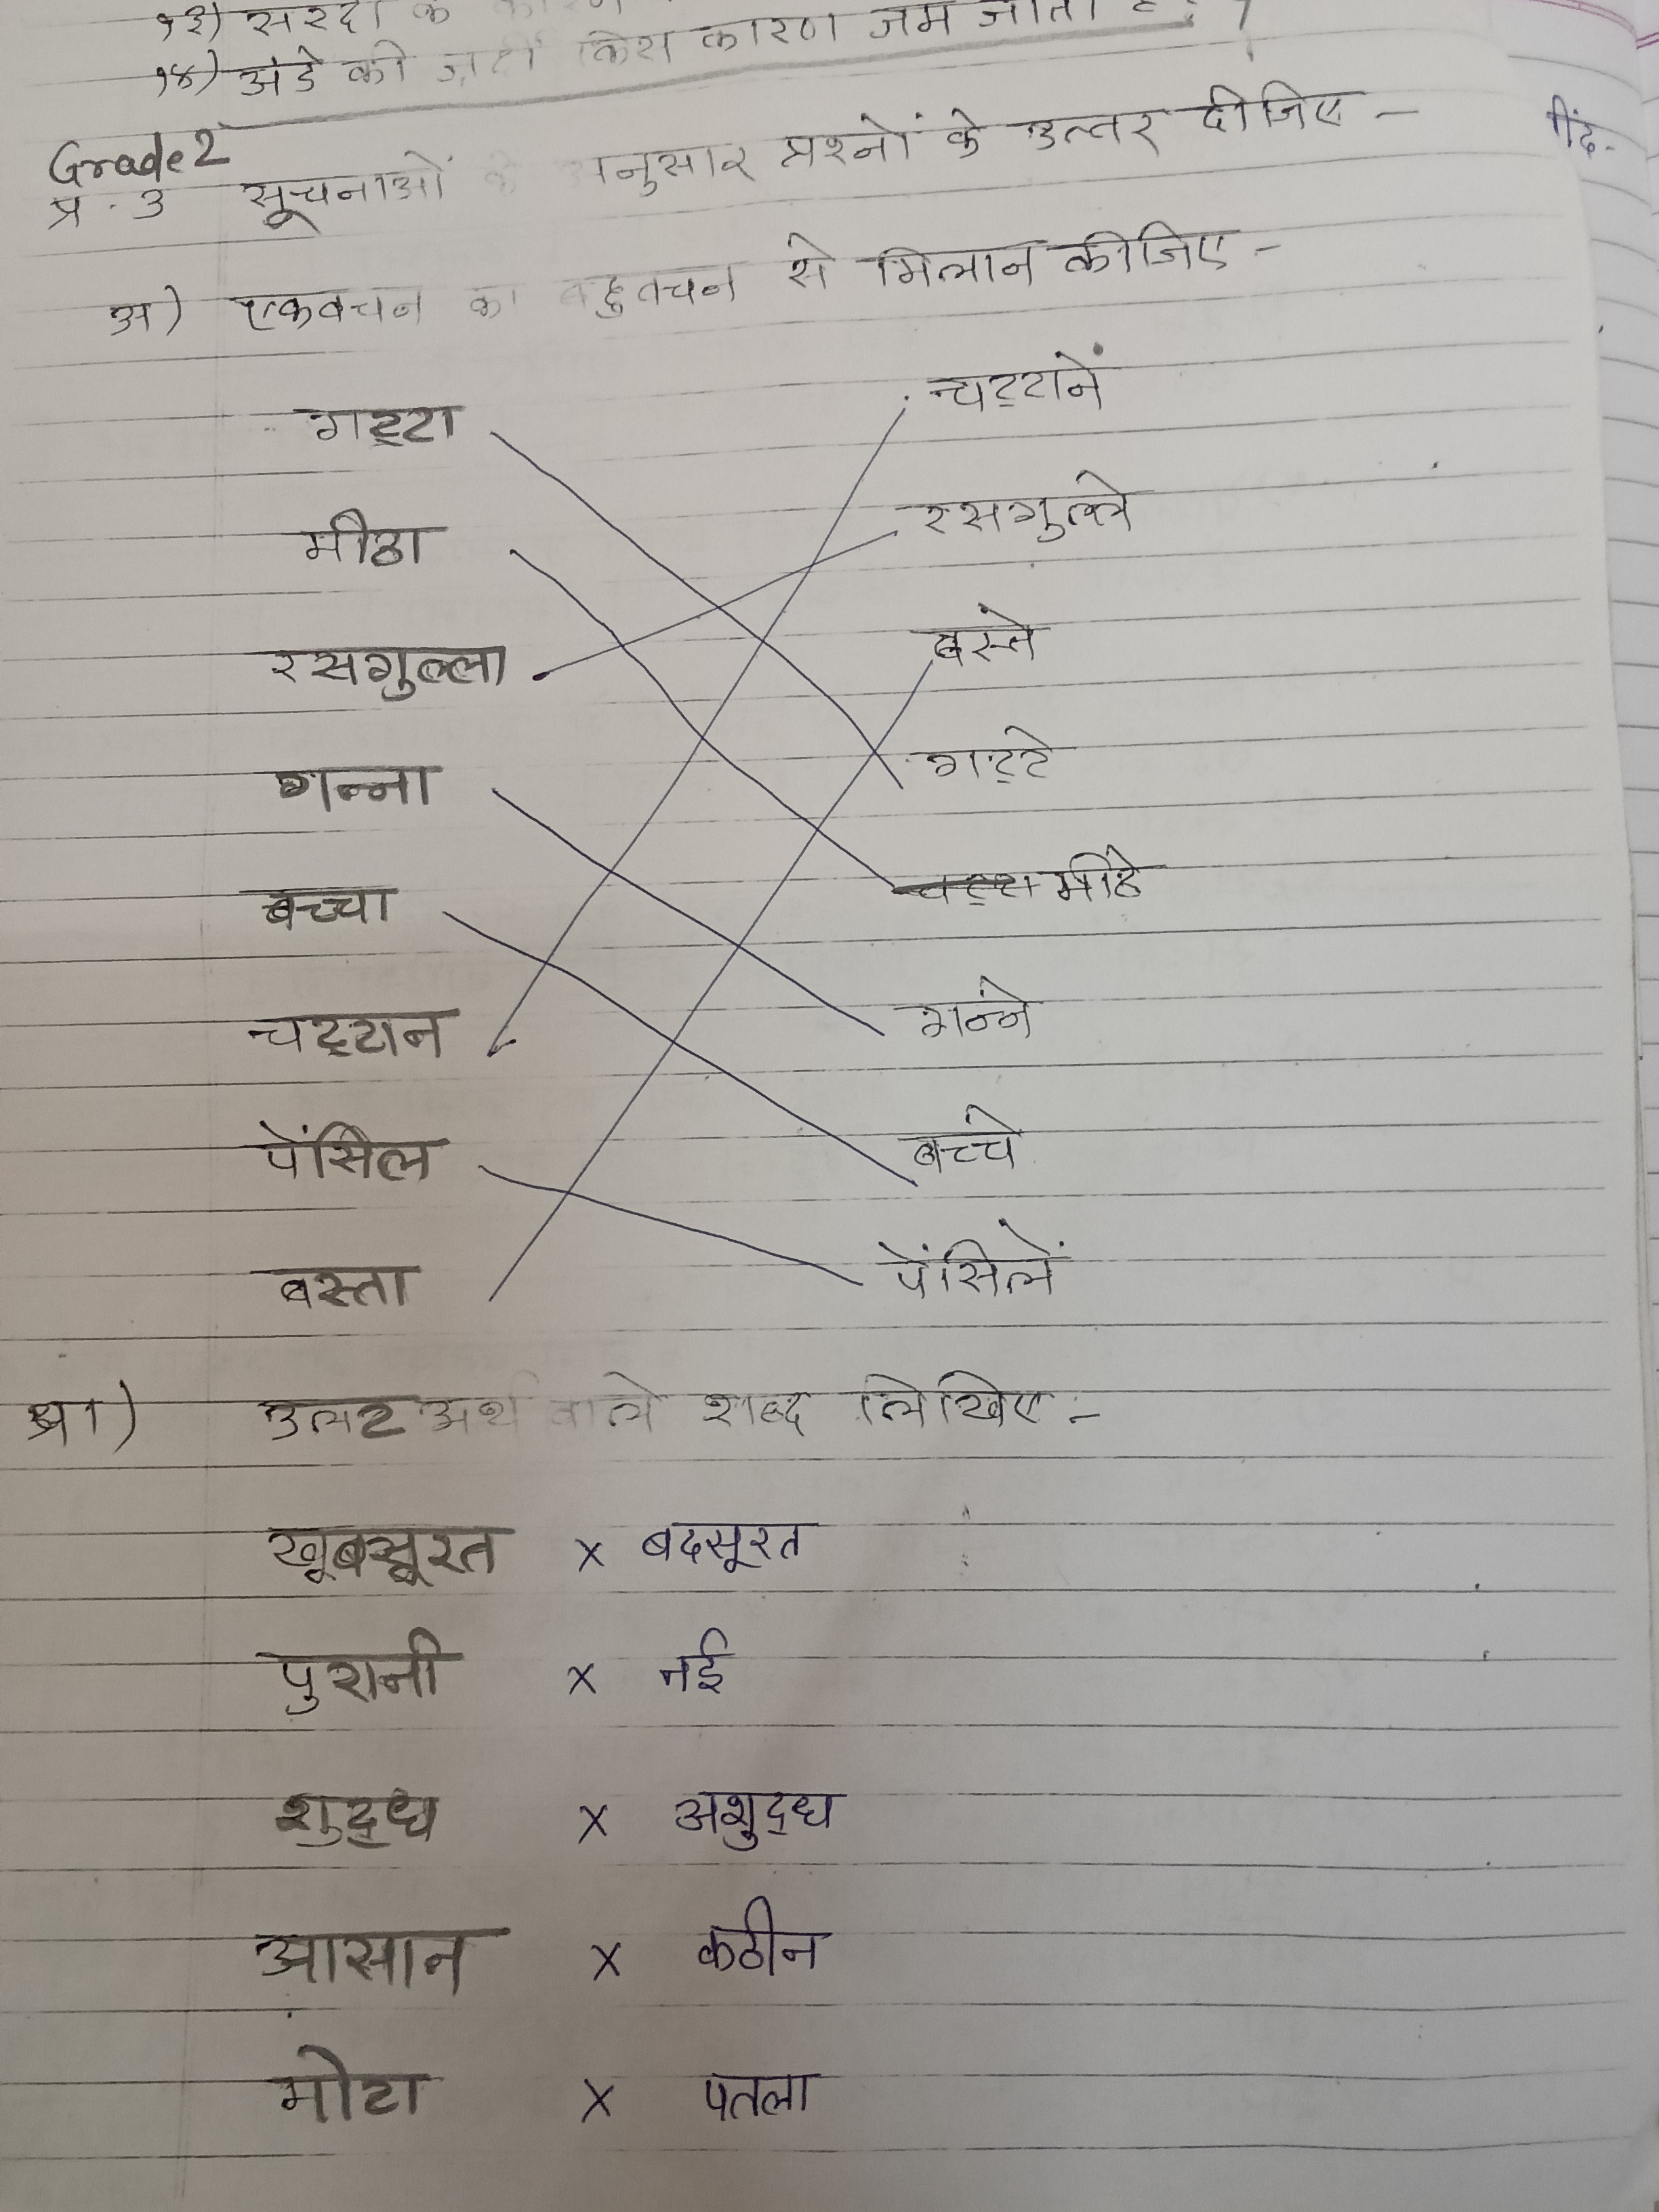 १३) सरदी के कारण
१४) अंडे की ज़र्दी किस कारण जम जाती है ?
Grade 2
प्र. 3 सूचनाओं के अनुसार प्रश्नों के उत्तर दीजिए –
अ) एकवचन का बहुवचन से मिलान कीजिए –
गट्टा चट्टानें
मीठा रसगुल्ले
रसगुल्ला बस्ते
गन्ना गट्टे
बच्चा मीठे
चट्टान गन्ने
पेंसिल बच्चे
बस्ता पेंसिलें
आ) उलट अर्थ वाले शब्द लिखिए :-
खूबसूरत × बदसूरत
पुरानी × नई
शुद्ध × अशुद्ध
आसान × कठीन
मोटा × पतला